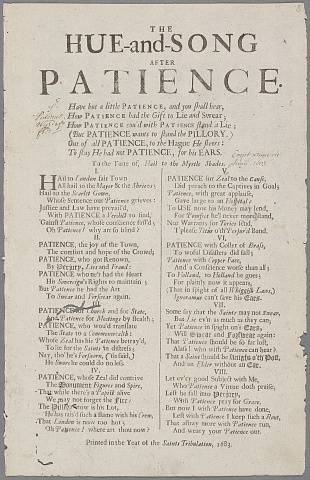 THE
HUE-and-SONG
AFTER
PATIENCE.
Have but a little PATIENCE, and you shall hear,
How PATIENCE had the Gift to Lie and Swear;
How PATIENCE cou'd with PATIENCE stand a Lie;
(But PATIENCE wants to stand the PILLORY.)
Out of all PATIENCE, to the Hague He steers:
To stay He had not PATIENCE, for his EARS.
To the Tune of, Hail to the Myrtle Shades.
I.
Hail to London fair Town
All hail to the Mayor & the Shrives;
Hail to the Scarlet Gown,
Whose Sentence our Patience grieves:
Justice and Law have prevail'd,
With PATIENCE a Verdict to find,
Gainst Patience, whole confidence fail'd;
Oh Patience! why art so blind?
II.
PATIENCE, the joy of the Town,
The comfort and hope of the Crowd;
PATIENCE, who got Renown,
By Perjury, Lies and Fraud:
PATIENCE who ne'r had the Heart
His Sovereign's Rights to maintain;
But Patience he had the Art
To Swear and Forswear again.
III.
PATIENCE for Church and for State,
And Patience for Meetings by stealth;
PATIENCE, who wou'd translate
The State to a Commonwealth:
Whose Zeal has his Patience betray'd,
To be for the Saints in distress;
Nay, tho' he's Forsworn, ('tis said,)
He Swore he could do no less.
IV.
PATIENCE, whose Zeal did contrive
The Monument Figures and Spire,
That while there's a Papist alive
We may not forget the Fire:
The Pillory now is his Lot,
He has rais'd such a flame with his Crew,
That London is now too hot;
Oh Patience! where art thou now?
V.
PATIENCE for Zeal to the Cause,
Did preach to the Captives in Goal;
Patience, with great applause,
Gave large to an Hospital:
To USE now his Money may lend,
For Pontfect he's never more stand,
Nor Warrants for Tories send,
T'please Titus o'th'Perjur'd Band.
VI.
PATIENCE with Collet of Brass,
To woful Disasters did fall;
Patience with Copper Face,
And a Conscience worse than all;
To Holland, to Holland he goes;
For plainly now it appears,
That in spight of all Whiggish Laws,
Ignoramus can't save his Ears.
VII.
Some say that the Saints may not Swear,
But Lie ev'n as much as they can;
Yet Patience in spight on's Ears,
Will Swear and Forswear again:
That Patience should be so far lost,
Alas! who with Patience can hear?
That a Saint should be Knight o'th Post,
And an Elder without an Ear.
VIII.
Let ev'ry good Subject with Me,
Who Patience a Virtue doth praise,
Lest he fall into Perjury,
With Patience pray for Grace.
But now I with Patience have done,
Left with Patience I keep such a Rout,
That all may more with Patience run,
And weary your Patience out.
Printed in the Year of the Saints Tribulation, 1683.